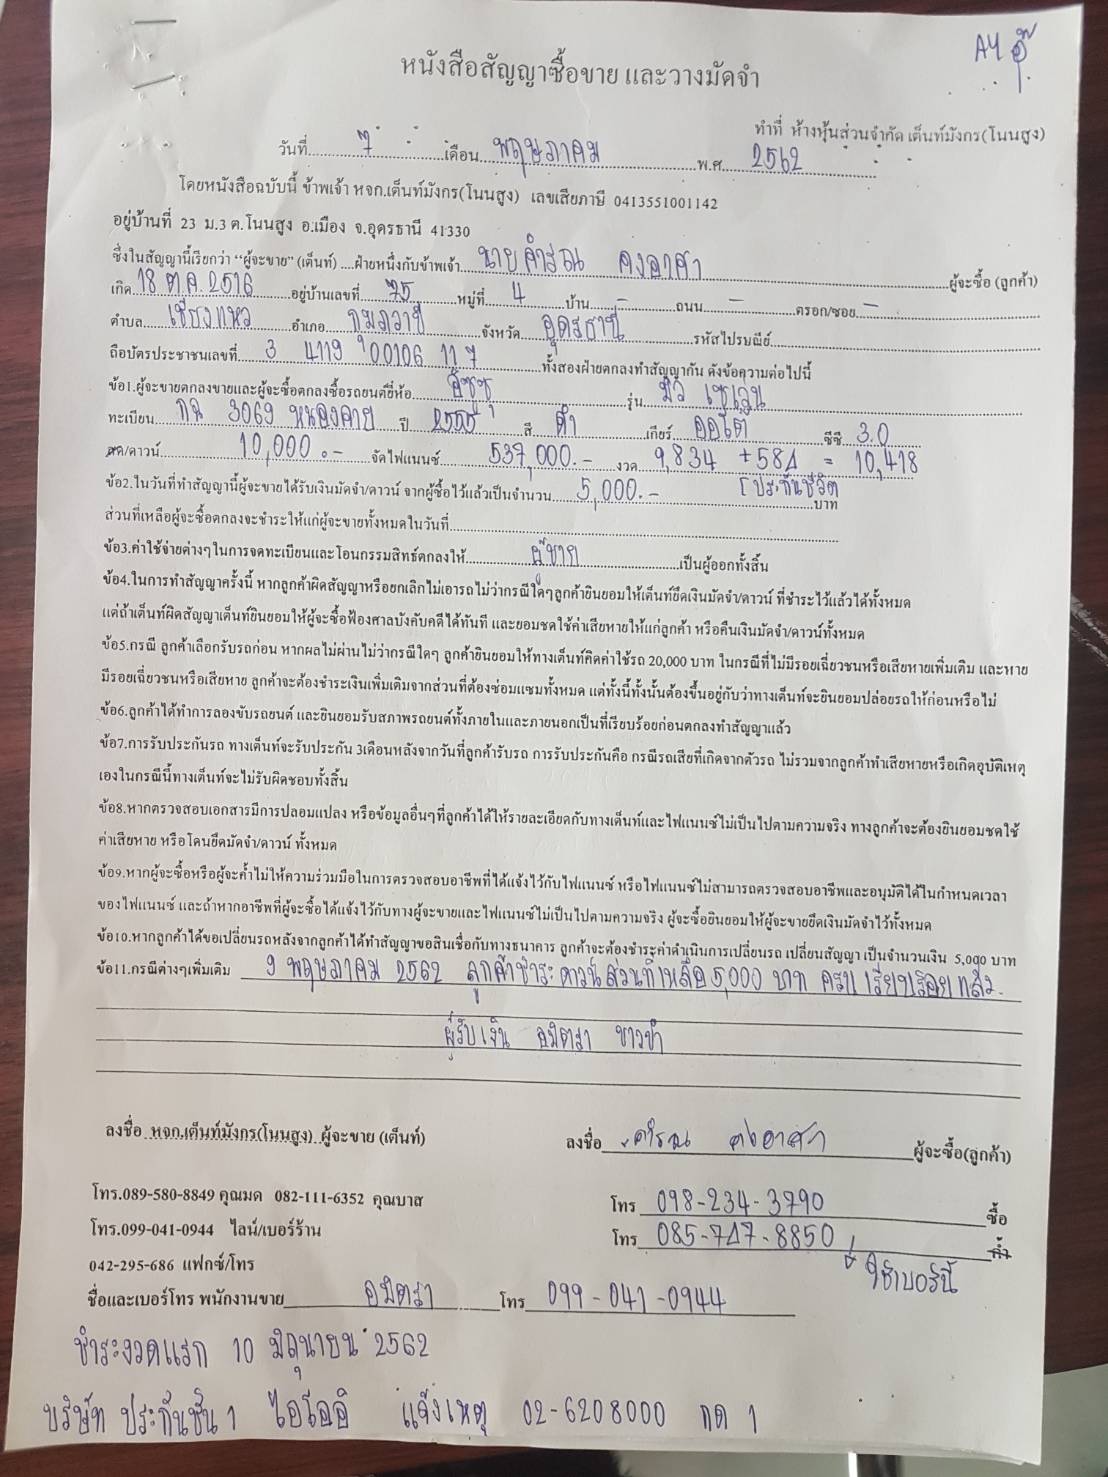 AY อุ๊
หนังสือสัญญาซื้อขาย และวางมัดจำ
ทำที่ ห้างหุ้นส่วนจำกัด เต็นท์มังกร(โนนสูง)
วันที่ 7 เดือน พฤษภาคม พ.ศ. 2562
โดยหนังสือฉบับนี้ ข้าพเจ้า หจก.เต็นท์มังกร(โนนสูง) เลขเสียภาษี 0413551001142
อยู่บ้านที่ 23 ม.3 ต.โนนสูง อ.เมือง จ.อุดรธานี 41330
ซึ่งในสัญญานี้เรียกว่า "ผู้จะขาย" (เต็นท์) ....ฝ่ายหนึ่งกับข้าพเจ้า นายคำรณ คงอาสา ผู้จะซื้อ (ลูกค้า)
เกิด 18 ต.ค. 2516 อยู่บ้านเลขที่ 75 หมู่ที่ 4 บ้าน - ถนน - ตรอก/ซอย -
ตำบล เชียงแหว อำเภอ กุมภวาปี จังหวัด อุดรธานี รหัสไปรษณีย์
ถือบัตรประชาชนเลขที่ 3 4119 00106 11 7 ทั้งสองฝ่ายตกลงทำสัญญากัน ดังข้อความต่อไปนี้
ข้อ1.ผู้จะขายตกลงขายและผู้จะซื้อตกลงซื้อรถยนต์ยี่ห้อ อีซูซุ รุ่น มิว เซเว่น
ทะเบียน กฉ 3069 หนองคาย ปี 2555 สี ดำ เกียร์ ออโต้ ซีซี 3.0
สด/ดาวน์ 10,000.- จัดไฟแนนซ์ 537,000.- งวด 9,834 + 584 = 10,418
[ประกันชีวิต
ข้อ2.ในวันที่ทำสัญญานี้ผู้จะขายได้รับเงินมัดจำ/ดาวน์ จากผู้ซื้อไว้แล้วเป็นจำนวน 5,000.- บาท
ส่วนที่เหลือผู้จะซื้อตกลงจะชำระให้แก่ผู้จะขายทั้งหมดในวันที่
ข้อ3.ค่าใช้จ่ายต่างๆในการจดทะเบียนและโอนกรรมสิทธ์ตกลงให้ ผู้ขาย เป็นผู้ออกทั้งสิ้น
ข้อ4.ในการทำสัญญาครั้งนี้ หากลูกค้าผิดสัญญาหรือยกเลิกไม่เอารถ ไม่ว่ากรณีใดๆลูกค้ายินยอมให้เต็นท์ยึดเงินมัดจำ/ดาวน์ ที่ชำระไว้แล้วได้ทั้งหมด
แต่ถ้าเต็นท์ผิดสัญญาเต็นท์ยินยอมให้ผู้จะซื้อฟ้องศาลบังคับคดีได้ทันที และยอมชดใช้ค่าเสียหายให้แก่ลูกค้า หรือคืนเงินมัดจำ/ดาวน์ทั้งหมด
ข้อ5.กรณี ลูกค้าเลือกรับรถก่อน หากผลไม่ผ่านไม่ว่ากรณีใดๆ ลูกค้ายินยอมให้ทางเต็นท์คิดค่าใช้รถ 20,000 บาท ในกรณีที่ไม่มีรอยเฉี่ยวชนหรือเสียหายเพิ่มเติม และหาย
มีรอยเฉี่ยวชนหรือเสียหาย ลูกค้าจะต้องชำระเงินเพิ่มเติมจากส่วนที่ต้องซ่อมแซมทั้งหมด แต่ทั้งนี้ทั้งนั้นต้องขึ้นอยู่กับว่าทางเต็นท์จะยินยอมปล่อยรถให้ก่อนหรือไม่
ข้อ6.ลูกค้าได้ทำการลองขับรถยนต์ และยินยอมรับสภาพรถยนต์ทั้งภายในและภายนอกเป็นที่เรียบร้อยก่อนตกลงทำสัญญาแล้ว
ข้อ7.การรับประกันรถ ทางเต็นท์จะรับประกัน 3เดือนหลังจากวันที่ลูกค้ารับรถ การรับประกันคือ กรณีรถเสียที่เกิดจากตัวรถ ไม่รวมจากลูกค้าทำเสียหายหรือเกิดอุบัติเหตุ
เองในกรณีนี้ทางเต็นท์จะไม่รับผิดชอบทั้งสิ้น
ข้อ8.หากตรวจสอบเอกสารมีการปลอมแปลง หรือข้อมูลอื่นๆที่ลูกค้าได้ให้รายละเอียดกับทางเต็นท์และไฟแนนซ์ไม่เป็นไปตามความจริง ทางลูกค้าจะต้องยินยอมชดใช้
ค่าเสียหาย หรือโดนยึดมัดจำ/ดาวน์ ทั้งหมด
ข้อ9.หากผู้จะซื้อหรือผู้จะค้ำไม่ให้ความร่วมมือในการตรวจสอบอาชีพที่ได้แจ้งไว้กับไฟแนนซ์ หรือไฟแนนซ์ไม่สามารถตรวจสอบอาชีพและอนุมัติได้ในกำหนดเวลา
ของไฟแนนซ์ และถ้าหากอาชีพที่ผู้จะซื้อได้แจ้งไว้กับทางผู้จะขายและไฟแนนซ์ไม่เป็นไปตามความจริง ผู้จะซื้อยินยอมให้ผู้จะขายยึดเงินมัดจำไว้ทั้งหมด
ข้อ10.หากลูกค้าได้ขอเปลี่ยนรถหลังจากลูกค้าได้ทำสัญญาขอสินเชื่อกับทางธนาคาร ลูกค้าจะต้องชำระค่าดำเนินการเปลี่ยนรถ เปลี่ยนสัญญา เป็นจำนวนเงิน 5,000 บาท
ข้อ11.กรณีต่างๆเพิ่มเติม 9 พฤษภาคม 2562 ลูกค้าชำระดาวน์ส่วนที่เหลือ 5,000 บาท ครบ เรียบร้อยแล้ว.
ผู้รับเงิน อมิตรา ขาวขำ
ลงชื่อ หจก.เต็นท์มังกร(โนนสูง) ผู้จะขาย (เต็นท์)
ลงชื่อ คำรณ คงอาสา ผู้จะซื้อ(ลูกค้า)
โทร.089-580-8849 คุณมด 082-111-6352 คุณบาส
โทร 098-234-3790 ซื้อ
โทร.099-041-0944 ไลน์/เบอร์ร้าน
โทร 085-747-8850 ค้ำ
042-295-686 แฟกซ์/โทร
ใช้เบอร์นี้
ชื่อและเบอร์โทร พนักงานขาย อมิตรา โทร 099-041-0944
ชำระงวดแรก 10 มิถุนายน 2562
บริษัท ประกันชั้น 1 ไอโออิ แจ้งเหตุ 02-6208000 กด 1